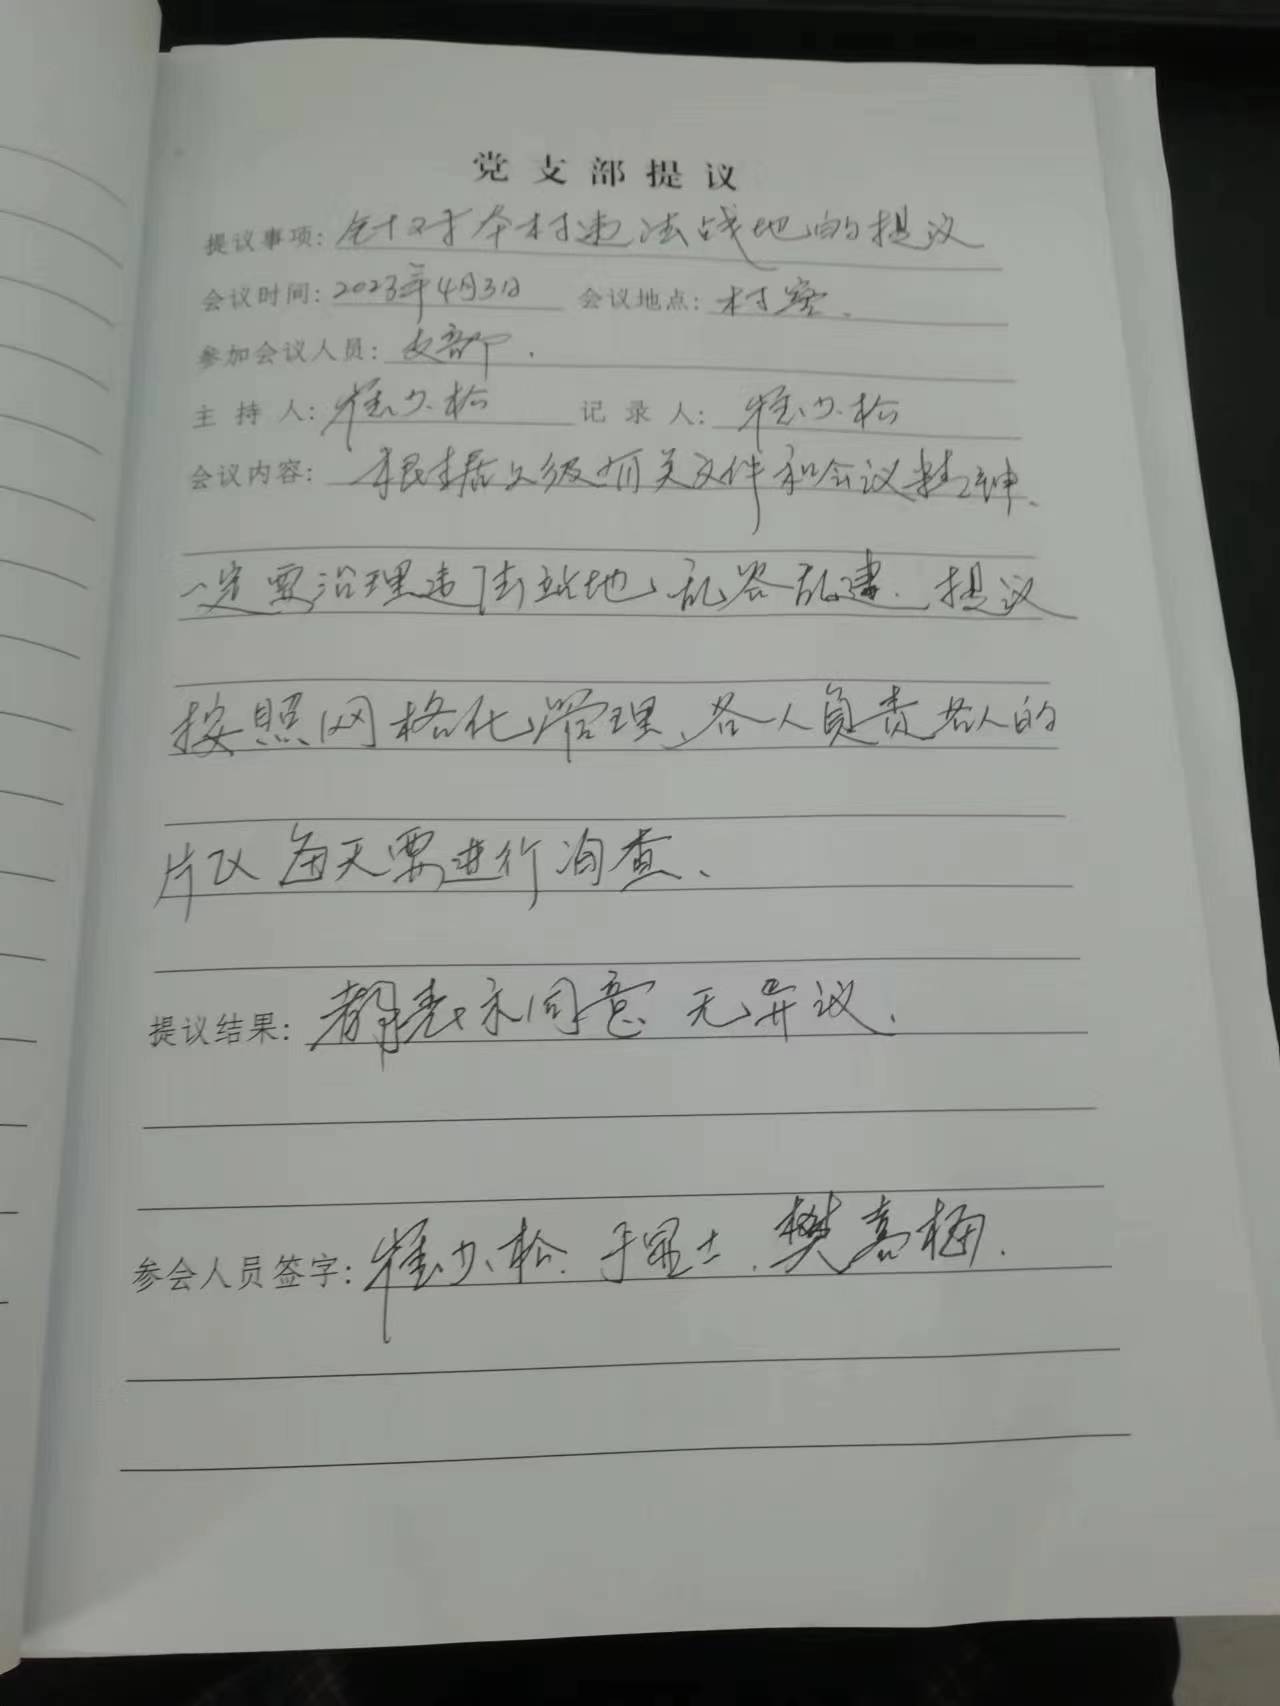 党支部提议
提议事项: 针对本村违法战地的提议
会议时间: 2023年4月3日 会议地点: 村室.
参加会议人员: 支部.
主持人: 小松 记录人: 小松
会议内容: 根据上级有关文件和会议精神、
一定要治理违法占地、乱答乱建. 提议
按照网格化管理、各人负责各人的
片区 每天要进行询查、
提议结果: 都表示同意 无异议.
参会人员签字: 小松. 于显士. 樊喜梅.